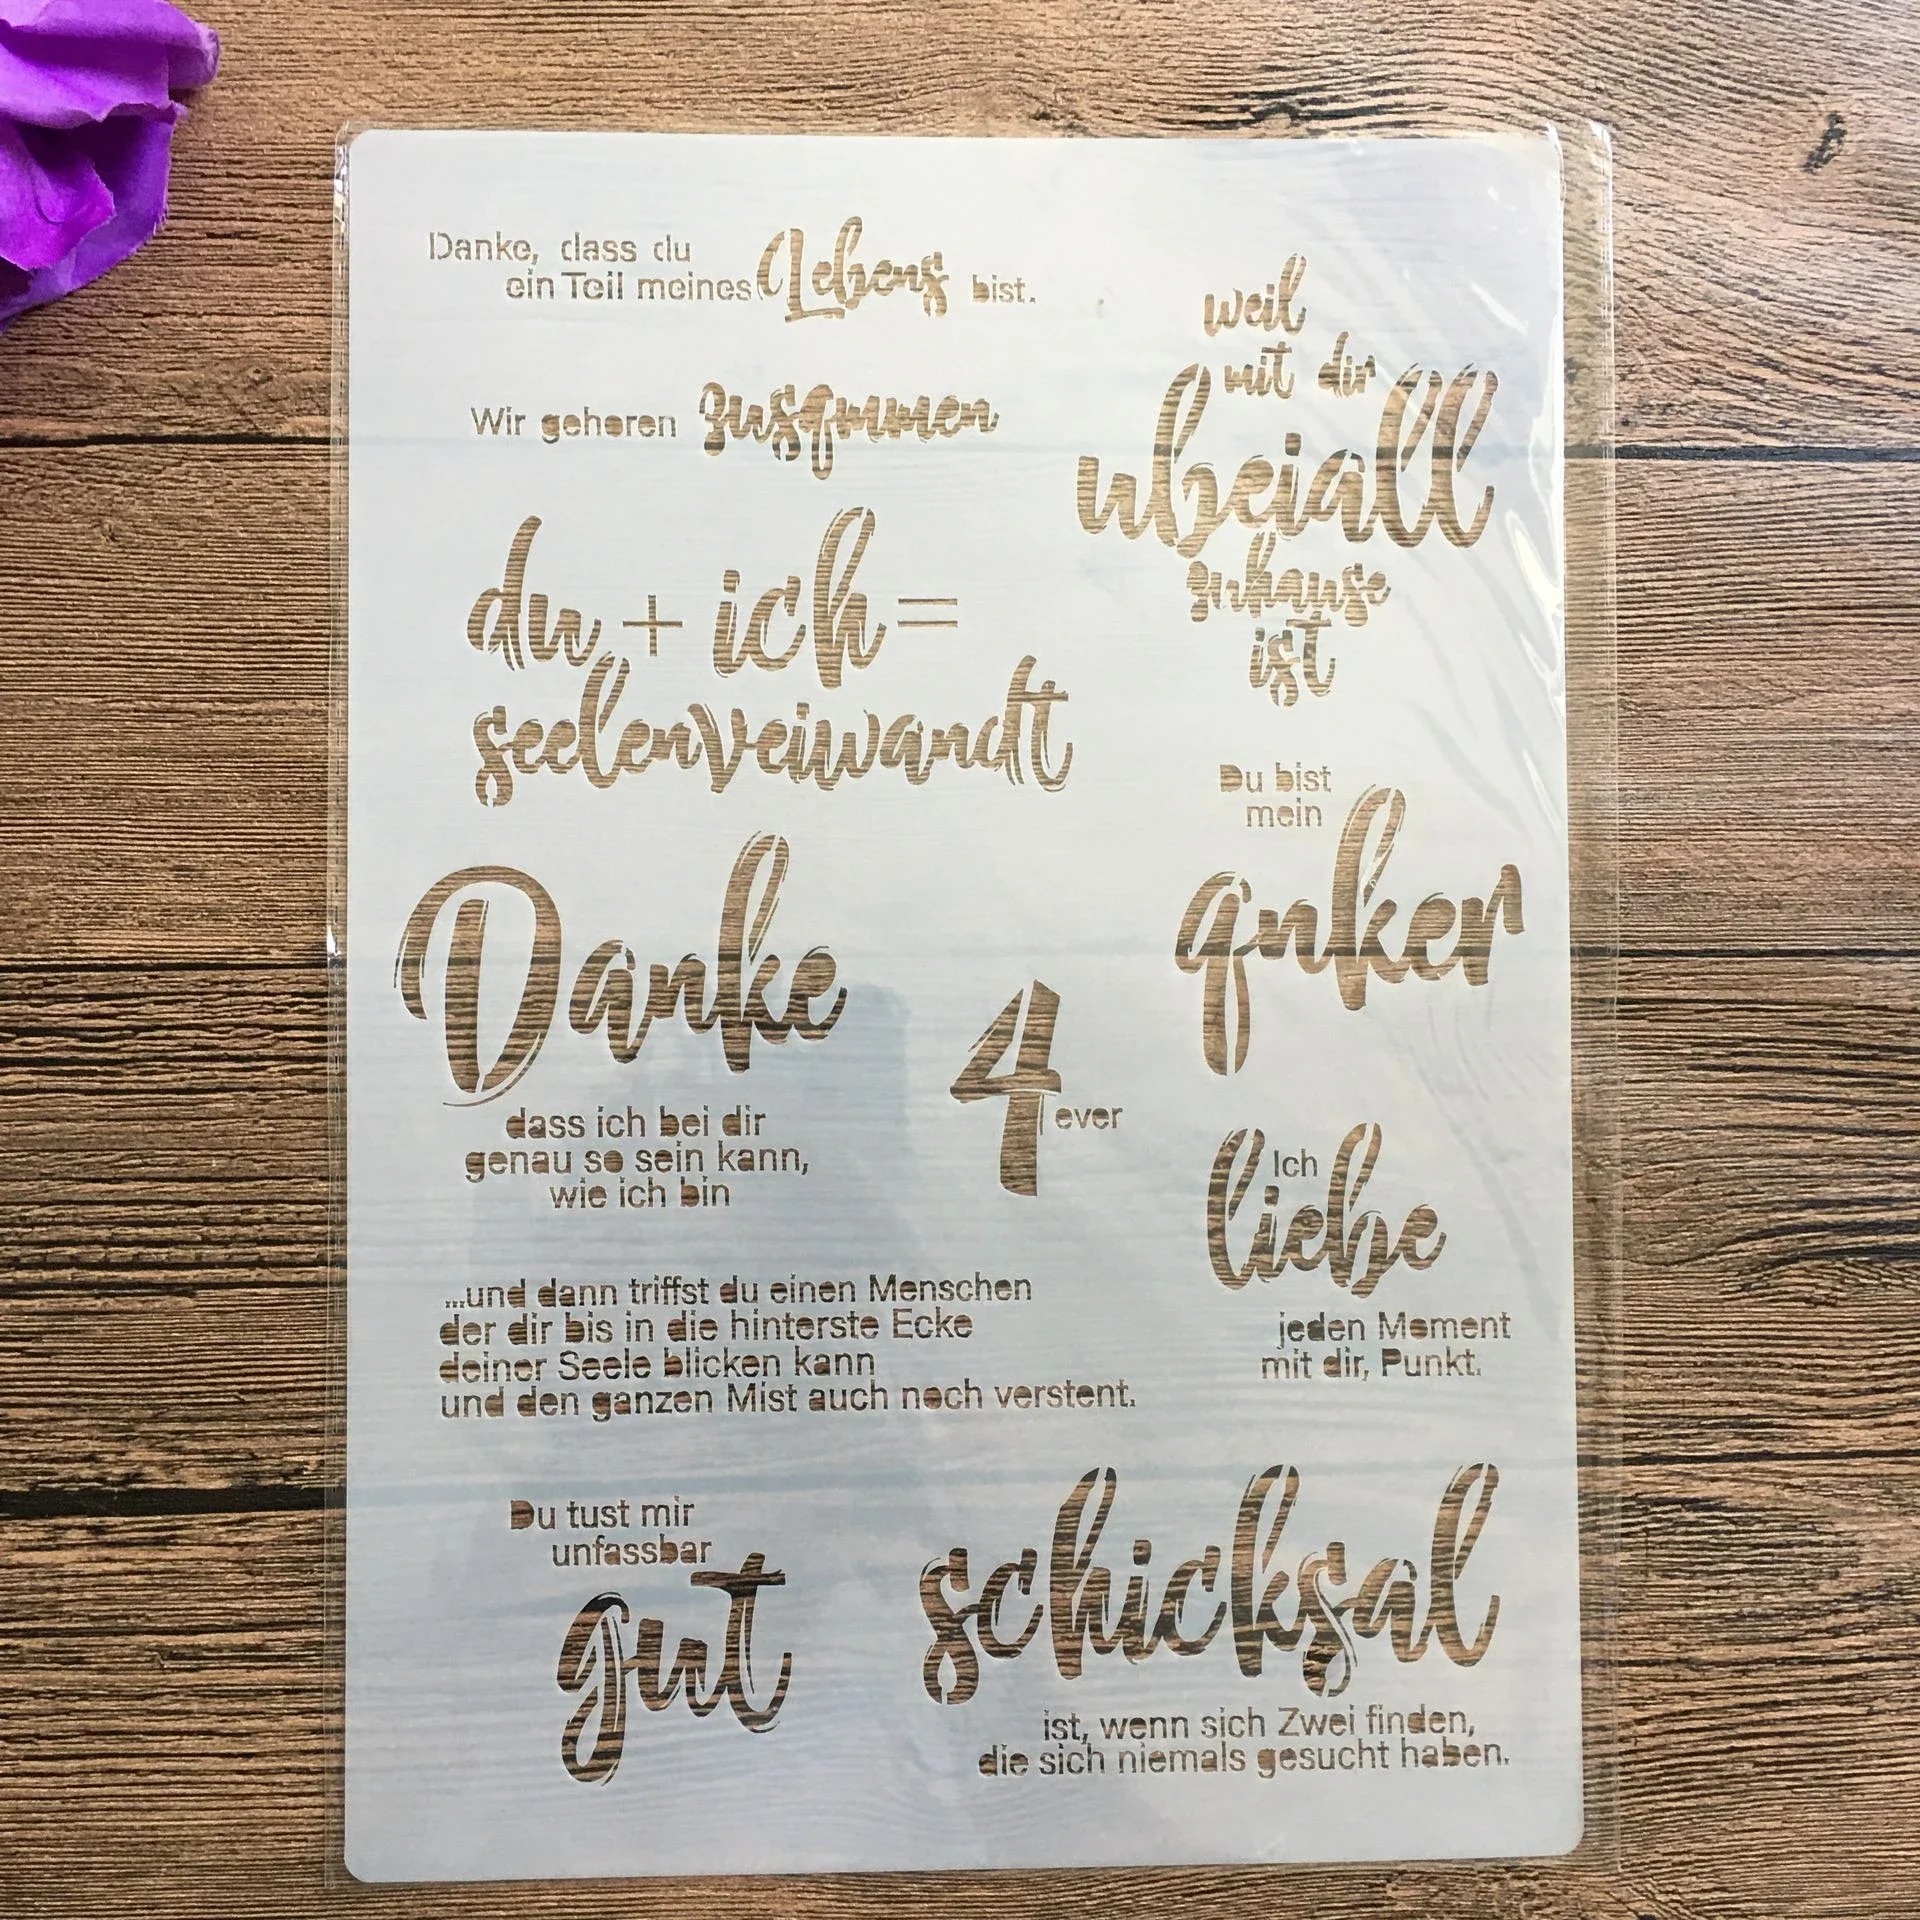 Danke, dass du
ein Teil meines Lebens bist.
Wir gehoren zusqmmen
weil
mit dir
ubeiall
zuhause
ist
du + ich =
seelenveiwandt
Du bist
mein
qnker
Danke
dass ich bei dir
genau so sein kann,
wie ich bin
4ever
Ich
liebe
jeden Moment
mit dir, Punkt.
...und dann triffst du einen Menschen
der dir bis in die hinterste Ecke
deiner Seele blicken kann
und den ganzen Mist auch noch verstent.
Du tust mir
unfassbar
gut
schicksal
ist, wenn sich Zwei finden,
die sich niemals gesucht haben.